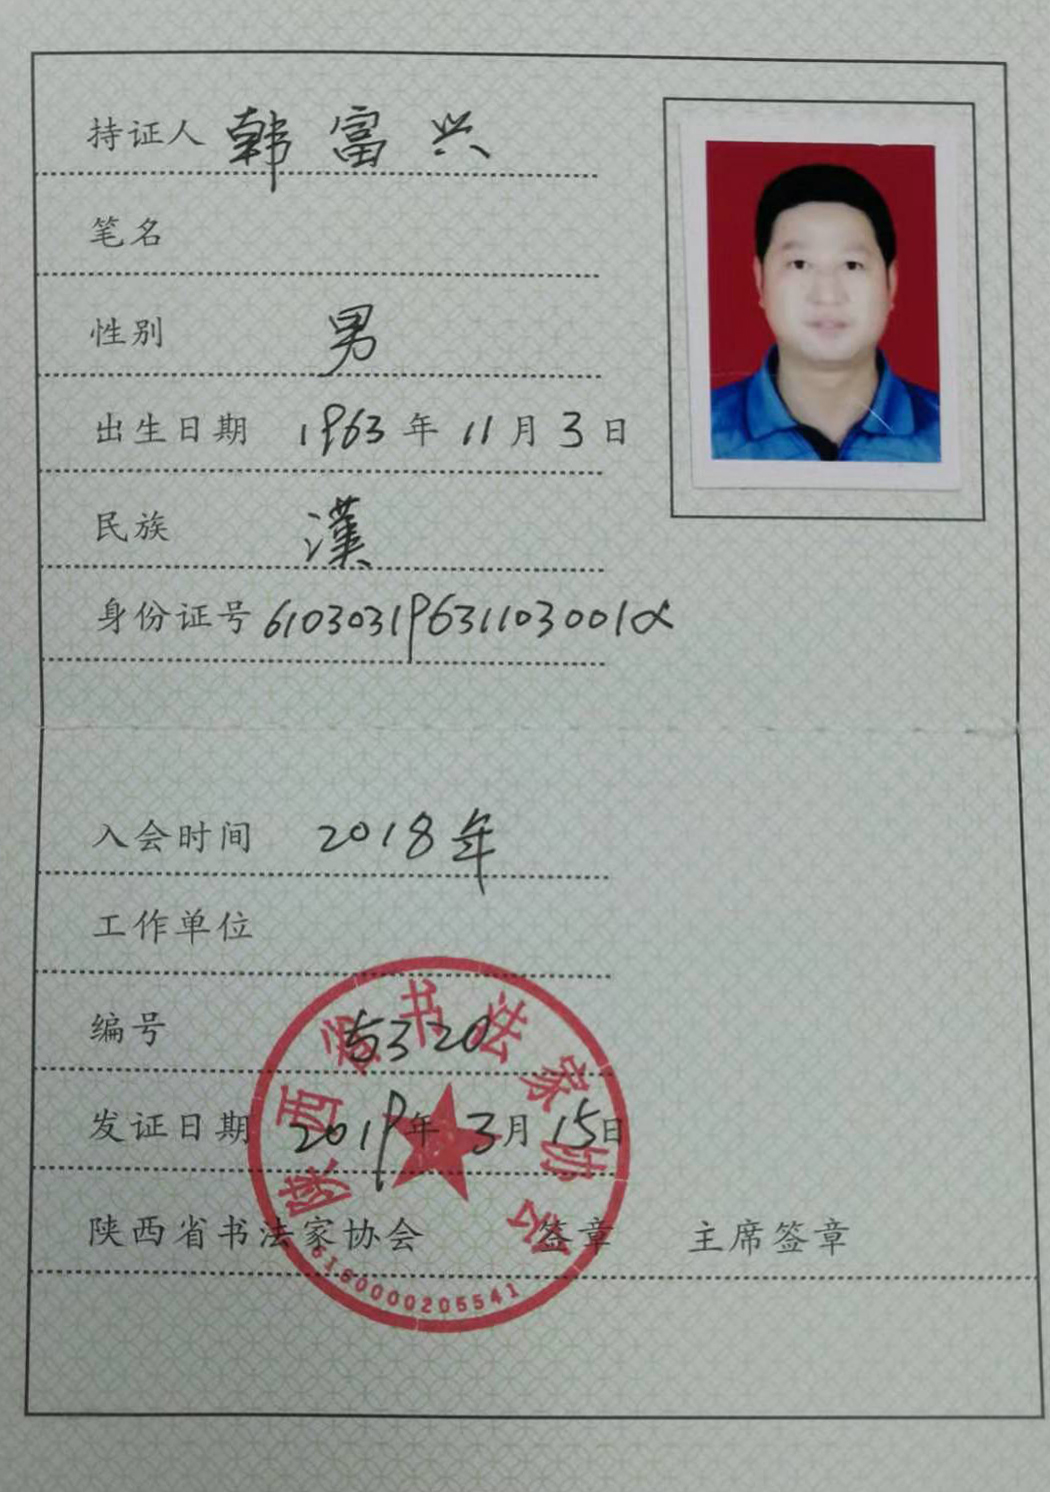 持证人 韩富兴
笔名
性别 男
出生日期 1963年11月3日
民族 漢
身份证号
入会时间 2018年
工作单位
编号 5320
发证日期 2019年3月15日
陕西省书法家协会 签章 主席签章
陕西省书法家协会